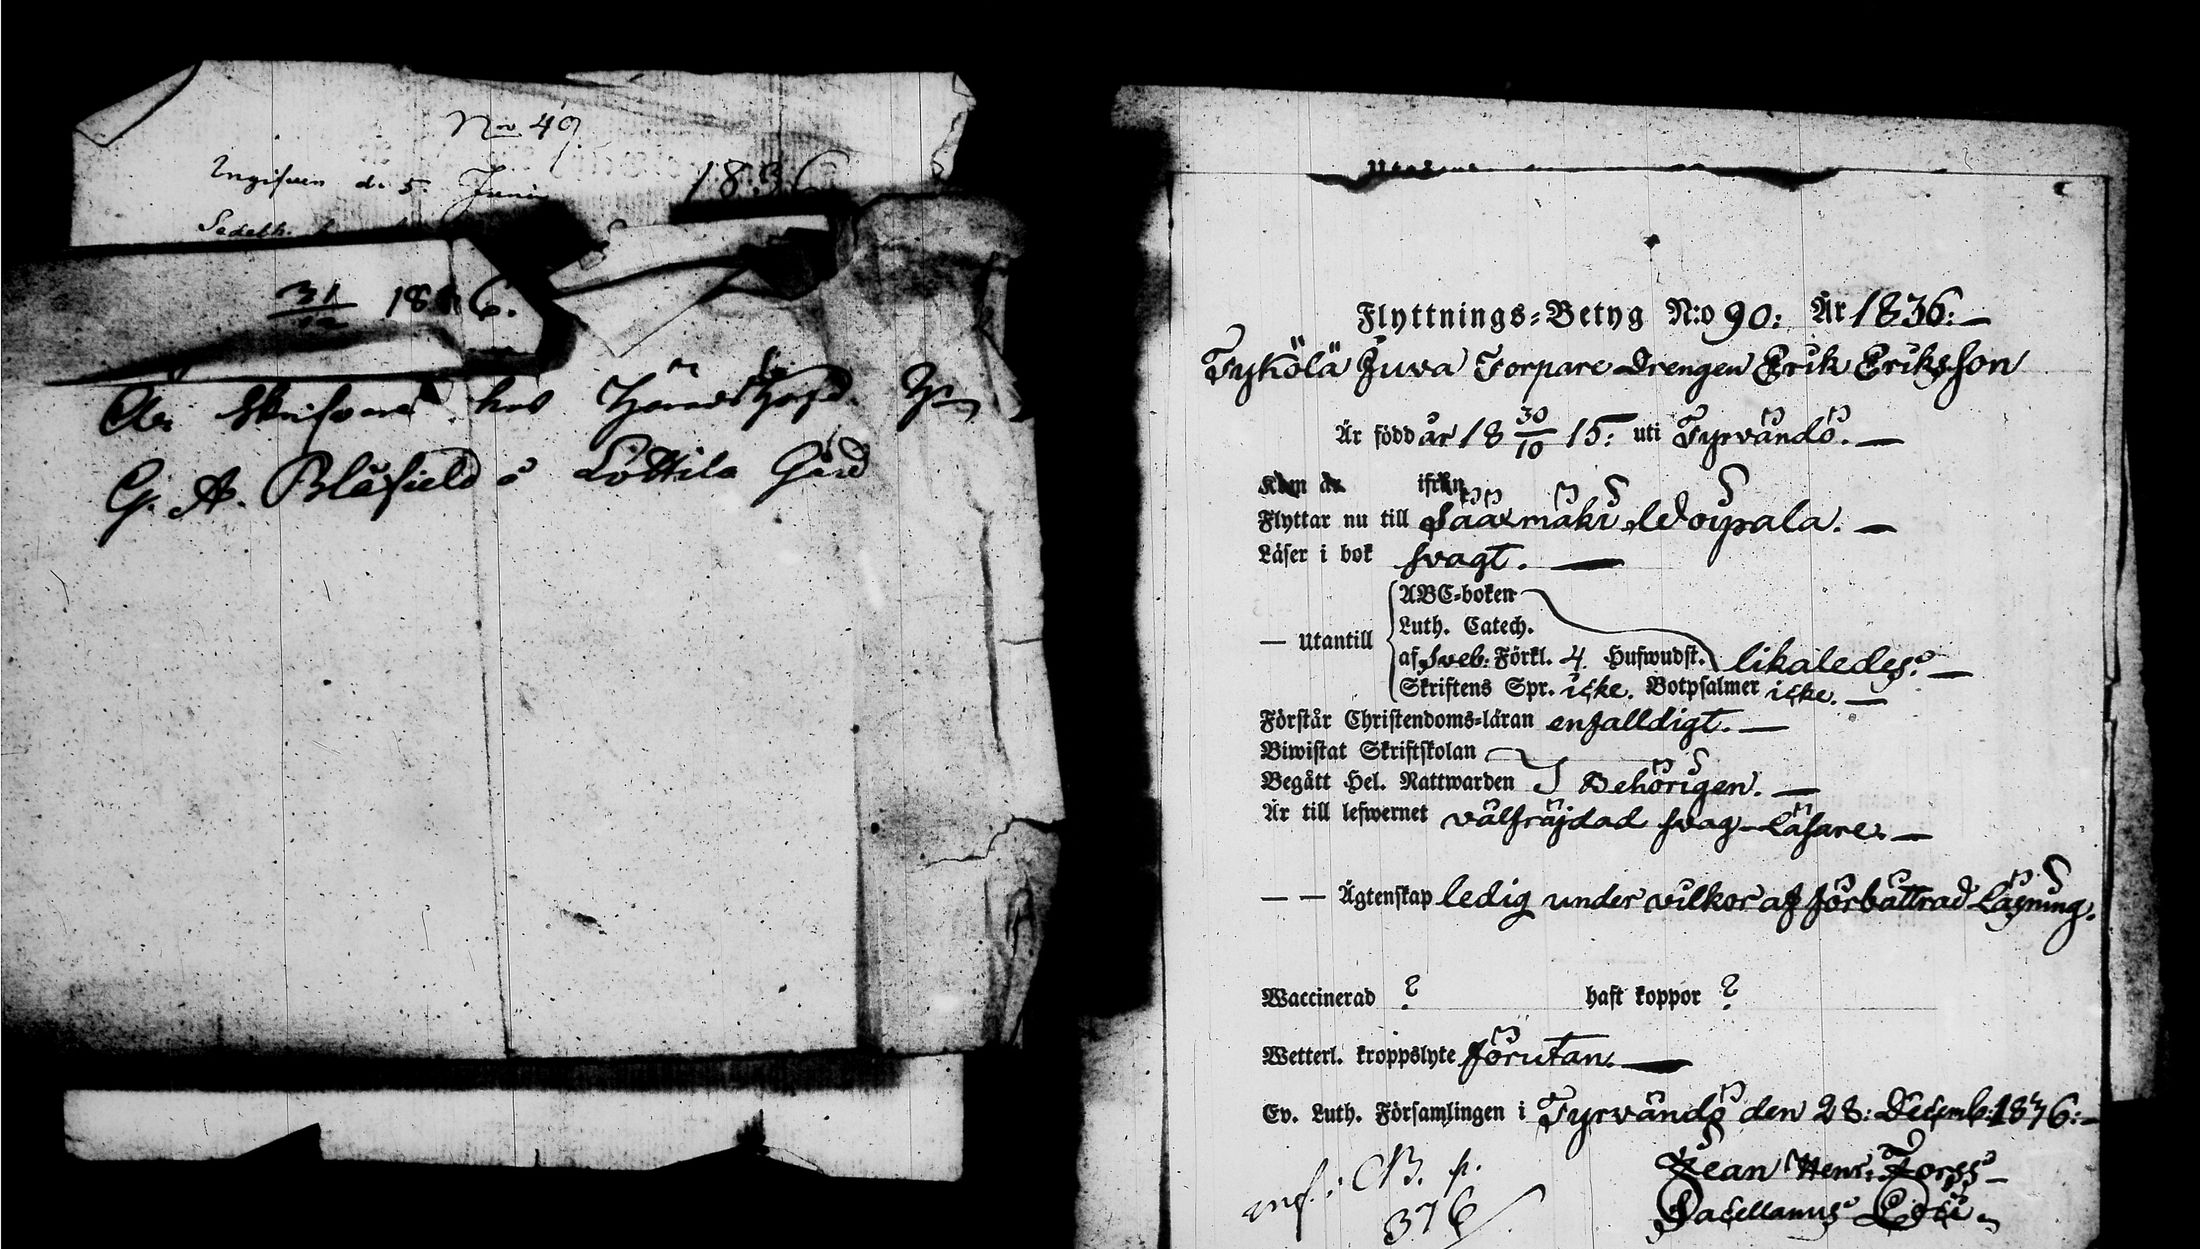 Nro 49
Ingifven d. 5 Junii 1836
Sedelh.
31/12 1836.
Är skrifvare hos Häradshöfd.
G. A. Blåfield å Lottila Gård
Flyttnings-Betyg N:o 90: År 1836:
Tykölä Juva Torpare Drengen Erik Eriksson
Är född år 18 30/10 15: uti Tyrvändö.
Kom de ifrån
Flyttar nu till Sääxmäki Woipala.
Läser i bok svagt.
— Utantill
ABC-boken
Luth. Catech.
af Sveb: Förkl. 4 Hufwudst. likaledes.
Skriftens Spr. icke. Botpsalmer icke.
Förstår Christendoms-läran enfalldigt.
Biwistat Skriftskolan
Begått Hel. Nattwarden I Behörigen.
Är till lefwernet välfräjdad svag-Läsare.
— — Ägtenskap ledig under vilkor af förbättrad Läsning.
Waccinerad ? haft koppor ?
Wetterl. kroppslyte förutan.
Ev. Luth. Församlingen i Tyrvändö den 28: Decemb: 1836:
Jean Henr: Forss
Sacellanus Loci
inf: CB. p.
376